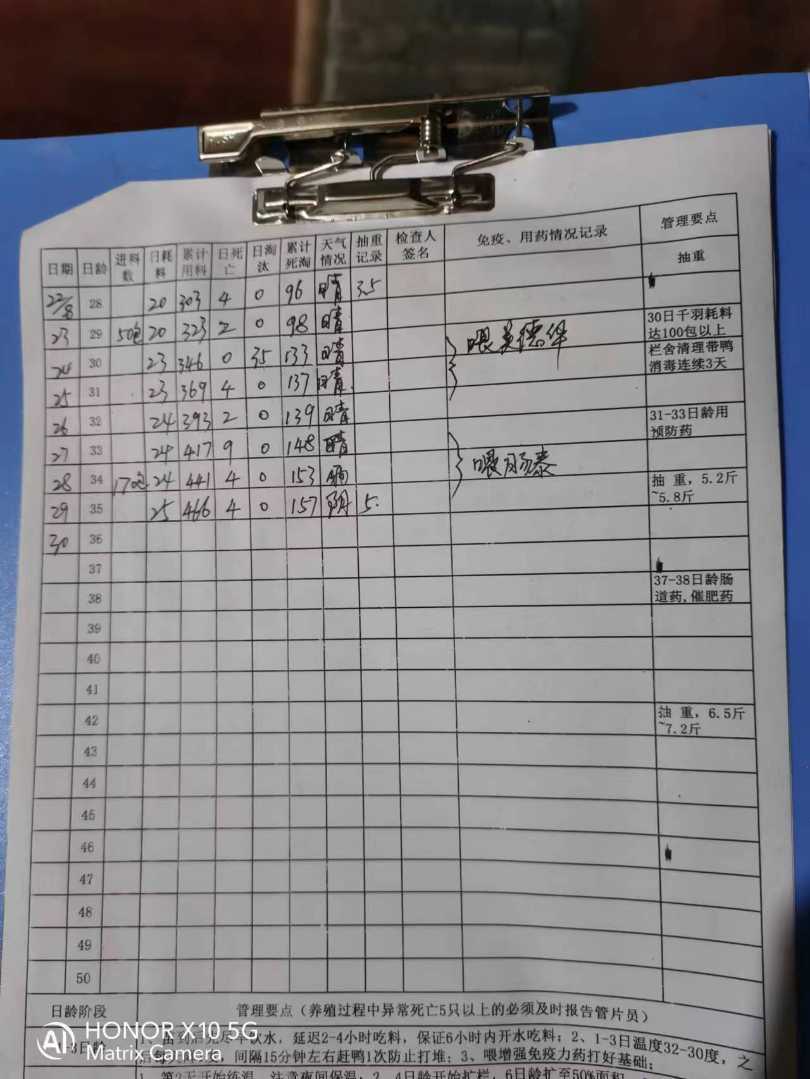 日期 日龄 进料数 日耗料 累计用料 日死亡 日淘汰 累计死淘 天气情况 抽重记录 检查人签名 免疫、用药情况记录 管理要点
抽重
22/8 28 20 303 4 0 96 晴 3.5
23 29 50包 20 323 2 0 98 晴 30日千羽耗料达100包以上
24 30 23 346 0 35 133 晴 喂 栏舍清理带鸭消毒连续3天
25 31 23 369 4 0 137 晴
26 32 24 393 2 0 139 晴 31-33日龄用预防药
27 33 24 417 9 0 148 晴
28 34 170包 24 441 4 0 153 喂肠泰 抽 重，5.2斤~5.8斤
29 35 25 466 4 0 157 阴 5.
30 36
37
38 37-38日龄肠道药,催肥药
39
40
41
42 抽 重，6.5斤~7.2斤
43
44
45
46
47
48
49
50
日龄阶段 管理要点（养殖过程中异常死亡5只以上的必须及时报告管片员）
水，延迟2-4小时吃料，保证6小时内开水吃料；2、1-3日温度32-30度，之
间隔15分钟左右赶鸭1次防止打堆；3、喂增强免疫力药打好基础；
HONOR X10 5G
Matrix Camera